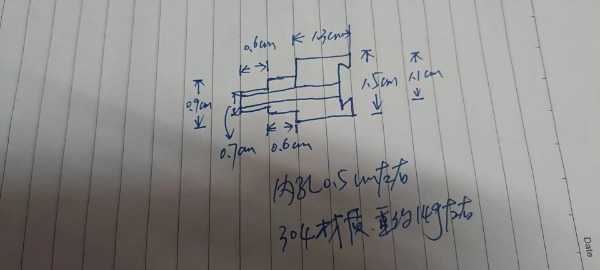 0.6cm
1.3cm
0.9cm
1.5cm
1.1cm
0.7cm
0.6cm
内孔0.5cm左右
304材质.重约14g左右
Date